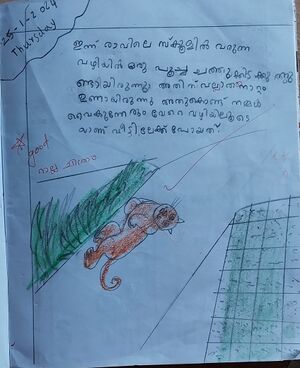 25-1-2024
Thursday
ഇന്ന് രാവിലെ സ്കൂളിൽ വരുന്ന
വഴിയിൽ ഒരു പൂച്ച ചത്തുകിടക്കുന്നു
ണ്ടായിരുന്നു. അതിന് വല്ലാത്ത നാറ്റം
ഉണ്ടായിരുന്നു അതുകൊണ്ട് നമ്മൾ
വൈകുന്നേരം വേറെ വഴിയിലൂടെ
യാണ് വീട്ടിലേക്ക് പോയത്.
good
നല്ല ചിത്രം